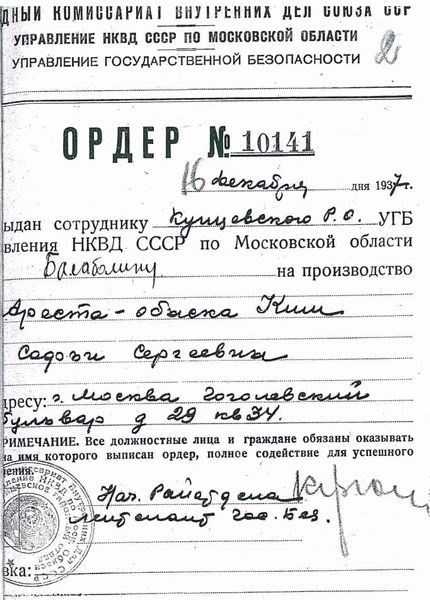 ДНЫЙ КОМИССАРИАТ ВНУТРЕННИХ ДЕЛ СОЮЗА ССР
УПРАВЛЕНИЕ НКВД СССР ПО МОСКОВСКОЙ ОБЛАСТИ
УПРАВЛЕНИЕ ГОСУДАРСТВЕННОЙ БЕЗОПАСНОСТИ
2
ОРДЕР № 10141
16 декабря дня 1937г.
ыдан сотруднику Кунцевского Р.О. УГБ
вления НКВД СССР по Московской области
Балаблину на производство
Ареста-обыска Ким
Сергеевны
дресу: г. Москва Гоголевский
бульвар д 29 кв 34.
РИМЕЧАНИЕ. Все должностные лица и граждане обязаны оказывать
на имя которого выписан ордер, полное содействие для успешного
нения.
Нач. Райотдела
лейтенант гос. Без.
вка: